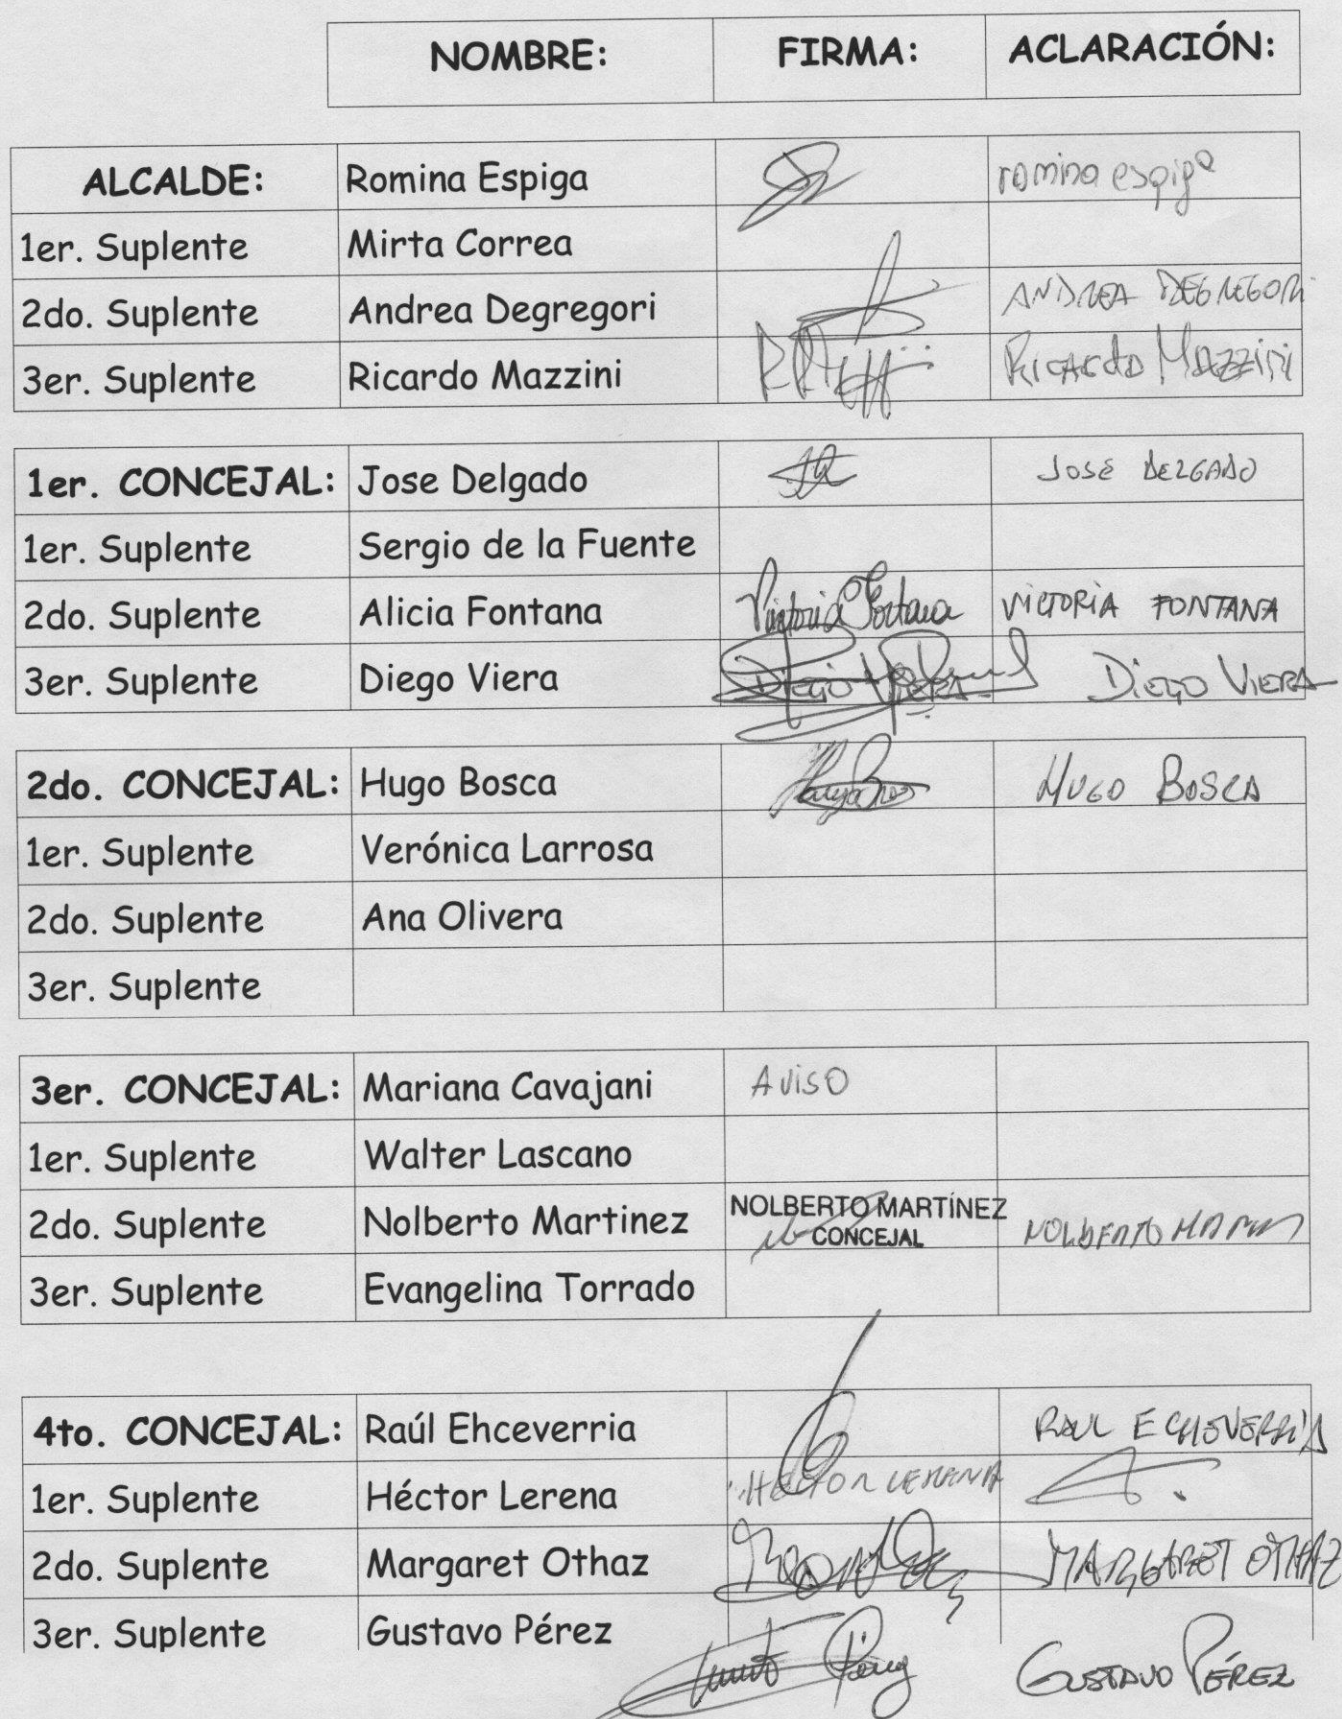 NOMBRE: FIRMA: ACLARACIÓN:
ALCALDE: Romina Espiga romina espiga
1er. Suplente Mirta Correa
2do. Suplente Andrea Degregori ANDREA DEGREGORI
3er. Suplente Ricardo Mazzini Ricardo Mazzini
1er. CONCEJAL: Jose Delgado JOSÉ DELGADO
1er. Suplente Sergio de la Fuente
2do. Suplente Alicia Fontana Victoria Fontana VICTORIA FONTANA
3er. Suplente Diego Viera Diego Viera Diego Viera
2do. CONCEJAL: Hugo Bosca HUGO BOSCA
1er. Suplente Verónica Larrosa
2do. Suplente Ana Olivera
3er. Suplente
3er. CONCEJAL: Mariana Cavajani AVISO
1er. Suplente Walter Lascano
2do. Suplente Nolberto Martinez NOLBERTO MARTÍNEZ CONCEJAL NOLBERTO
3er. Suplente Evangelina Torrado
4to. CONCEJAL: Raúl Ehceverria RAUL ECHEVERRÍA
1er. Suplente Héctor Lerena HÉCTOR LERENA
2do. Suplente Margaret Othaz MARGARET OTHAZ
3er. Suplente Gustavo Pérez GUSTAVO PÉREZ